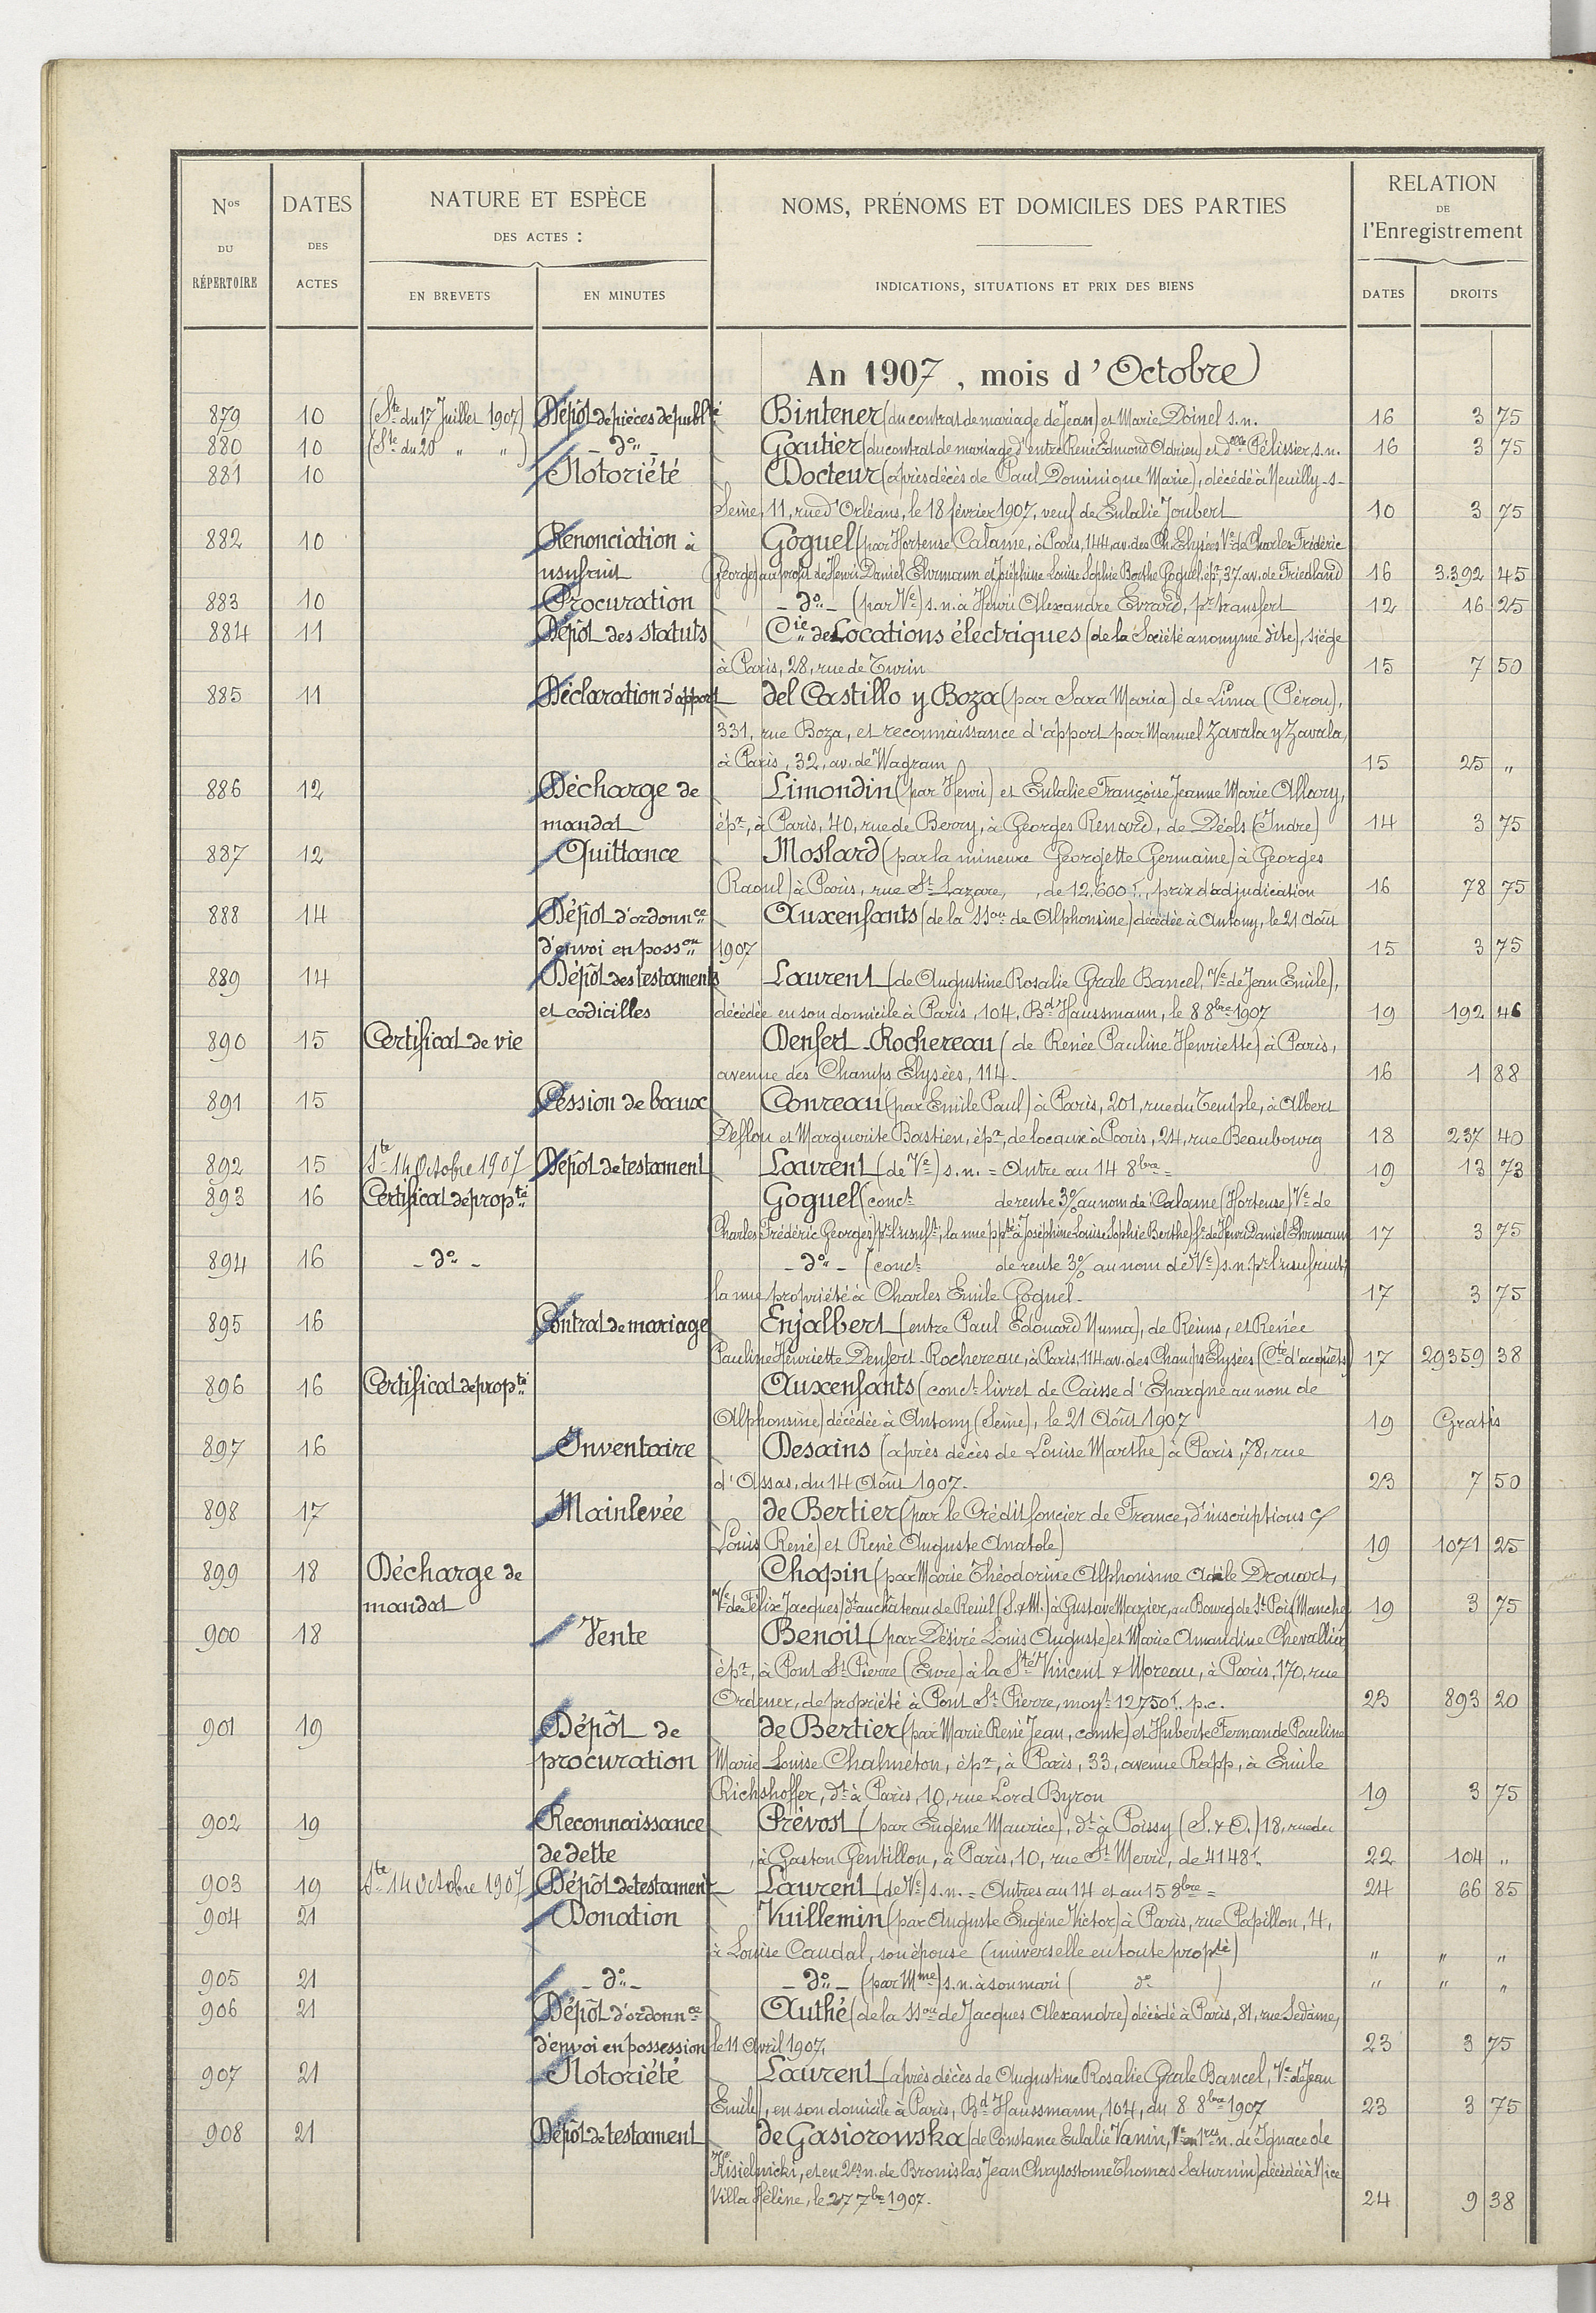 Nos DU RÉPERTOIRE
DATES DES ACTES
NATURE ET ESPÈCE DES ACTES :
EN BREVETS
EN MINUTES
NOMS, PRÉNOMS ET DOMICILES DES PARTIES
INDICATIONS, SITUATIONS ET PRIX DES BIENS
RELATION DE l'Enregistrement
DATES
DROITS
An 1907, mois d'Octobre
879 10 (Ste du 17 Juillet 1907) Dépôt de pièces de publté Bintener (du contrat de mariage de Jean) et Marie Doinel s.n. 16 3 75
880 10 (Ste du 20 " ") - do - Gautier (du contrat de mariage d'entre René Edmond Adrien) et delle Pélissier, s.n. 16 3 75
881 10 Notoriété Docteur (après décès de Paul Dominique Marie), décédé à Neuilly-s-
Seine, 11, rue d'Orléans, le 18 février 1907, veuf de Eulalie Joubert 10 3 75
882 10 Renonciation à Goguel (par Hortense Calame, à Paris, 144, av. des Ch. Elysées Ve de Charles Frédéric
usufruit Georges) au profit de Henri Daniel Ehrmann et Joséphine Louise Sophie Berthe Goguel, épx, 37, av. de Friedland 16 3.392 45
883 10 Procuration - do - (par Ve) s.n. à Henri Alexandre Evrard, pr transfert 12 16 25
884 11 Dépôt des statuts Cie de Locations électriques (de la Société anonyme dite), siège
à Paris, 28, rue de Turin 15 7 50
885 11 Déclaration d'apport del Castillo y Boza (par Sara Maria) de Lima (Pérou),
331, rue Boza, et reconnaissance d'apport par Manuel Zavala y Zavala,
à Paris, 32, av. de Wagram 15 25 "
886 12 Décharge de Limondin (par Henri) et Eulalie Françoise Jeanne Marie Allary,
mandat épx, à Paris, 40, rue de Berry, à Georges Renard, de Déols (Indre) 14 3 75
887 12 Quittance Moslard (par la mineure Georgette Germaine) à Georges
Raoul) à Paris, rue St Lazare, , de 12.600 f., prix d'adjudication 16 78 75
888 14 Dépôt d'ordonnce Auxenfants (de la ssion de Alphonsine) décédée à Antony, le 21 Août
d'envoi en posson 1907 15 3 75
889 14 Dépôt des testaments Laurent (de Augustine Rosalie Grale Bancel, Ve de Jean Emile),
et codicilles décédée en son domicile à Paris, 104, Bd Haussmann, le 8 8bre 1907 19 192 46
890 15 Certificat de vie Denfert-Rochereau (de Renée Pauline Henriette) à Paris,
avenue des Champs Elysées, 114. 16 1 88
891 15 Cession de baux Conreau (par Emile Paul) à Paris, 201, rue du Temple, à Albert
Deflou et Marguerite Bastien, épx, de locaux à Paris, 24, rue Beaubourg 18 237 40
892 15 Ste 14 Octobre 1907 Dépôt de testament Laurent (de Ve) s.n. = Autre au 14 8bre = 19 13 73
893 16 Certificat de propté Goguel (conct de rente 3% au nom de Calame (Hortense) Ve de
Charles Frédéric Georges) pr l'usuft, la nue ppté à Joséphine Louise Sophie Berthe, fe de Henri Daniel Ehrmann 17 3 75
894 16 - do - - do - (conct de rente 3% au nom de Ve) s.n. pr l'usufruit,
la nue propriété à Charles Emile Goguel. 17 3 75
895 16 Contrat de mariage Enjalbert (entre Paul Edouard Numa), de Reims, et Renée
Pauline Henriette Denfert-Rochereau, à Paris, 114, av. des Champs Elysées (Cté d'acquêts) 17 29359 38
896 16 Certificat de propté Auxenfants (conct livret de Caisse d'Epargne au nom de
Alphonsine) décédée à Antony (Seine), le 21 Août 1907 19 Gratis
897 16 Inventaire Desains (après décès de Louise Marthe) à Paris, 78, rue
d'Assas, du 14 Août 1907. 23 7 50
898 17 Mainlevée de Bertier (par le Crédit foncier de France, d'inscriptions c/
Louis René) et René Auguste Anatole) 19 1071 25
899 18 Décharge de Chapin (par Marie Théodorine Alphonsine Drouart,
mandat Ve de Félix Jacques) dt au château de Reuil (S. & M.) à Gustave Mazier, au Bourg de St Pois (Manche) 19 3 75
900 18 Vente Benoit (par Désiré Louis Auguste) et Marie Amandine Chevallier,
épx, à Pont St Pierre (Eure) à la Sté Vincent & Moreau, à Paris, 170, rue
Ordener, de propriété à Pont St Pierre, moyt 12750 f. p.c. 23 893 20
901 19 Dépôt de de Bertier (par Marie René Jean, comte) et Huberte Fernande Pauline
procuration Marie Louise Chalmeton, épx, à Paris, 33, avenue Rapp, à Emile
Richshoffer, dt à Paris, 10, rue Lord Byron 19 3 75
902 19 Reconnaissance Prévost (par Eugène Maurice), dt à Poissy (S. & O.) 18, rue de
de dette , à Gaston Gentillon, à Paris, 10, rue St Merri, de 4148 f. 22 104 "
903 19 Ste 14 Octobre 1907 Dépôt de testament Laurent (de Ve) s.n. = Autres au 14 et au 15 8bre = 24 66 85
904 21 Donation Vuillemin (par Auguste Eugène Victor) à Paris, rue Papillon, 4,
à Louise Caudal, son épouse (universelle en toute propté) " " "
905 21 - do - - do - (par Mme) s.n. à son mari ( do ) " " "
906 21 Dépôt d'ordonnce Authé (de la ssion de Jacques Alexandre) décédé à Paris, 81, rue Sedaine,
d'envoi en possession le 11 Avril 1907, 23 3 75
907 21 Notoriété Laurent (après décès de Augustine Rosalie Grale Bancel, Ve de Jean
Emile), en son domicile à Paris, Bd Haussmann, 104, du 8 8bre 1907 23 3 75
908 21 Dépôt de testament de Gasiorowska (de Constance Eulalie Vanin, Ve en 1res n. de Ignace de
Kisielnicki, et en 2es n. de Bronislas Jean Chrysostome Thomas Saturnin) décédée à Nice
Villa Hélène, le 27 7bre 1907. 24 9 38